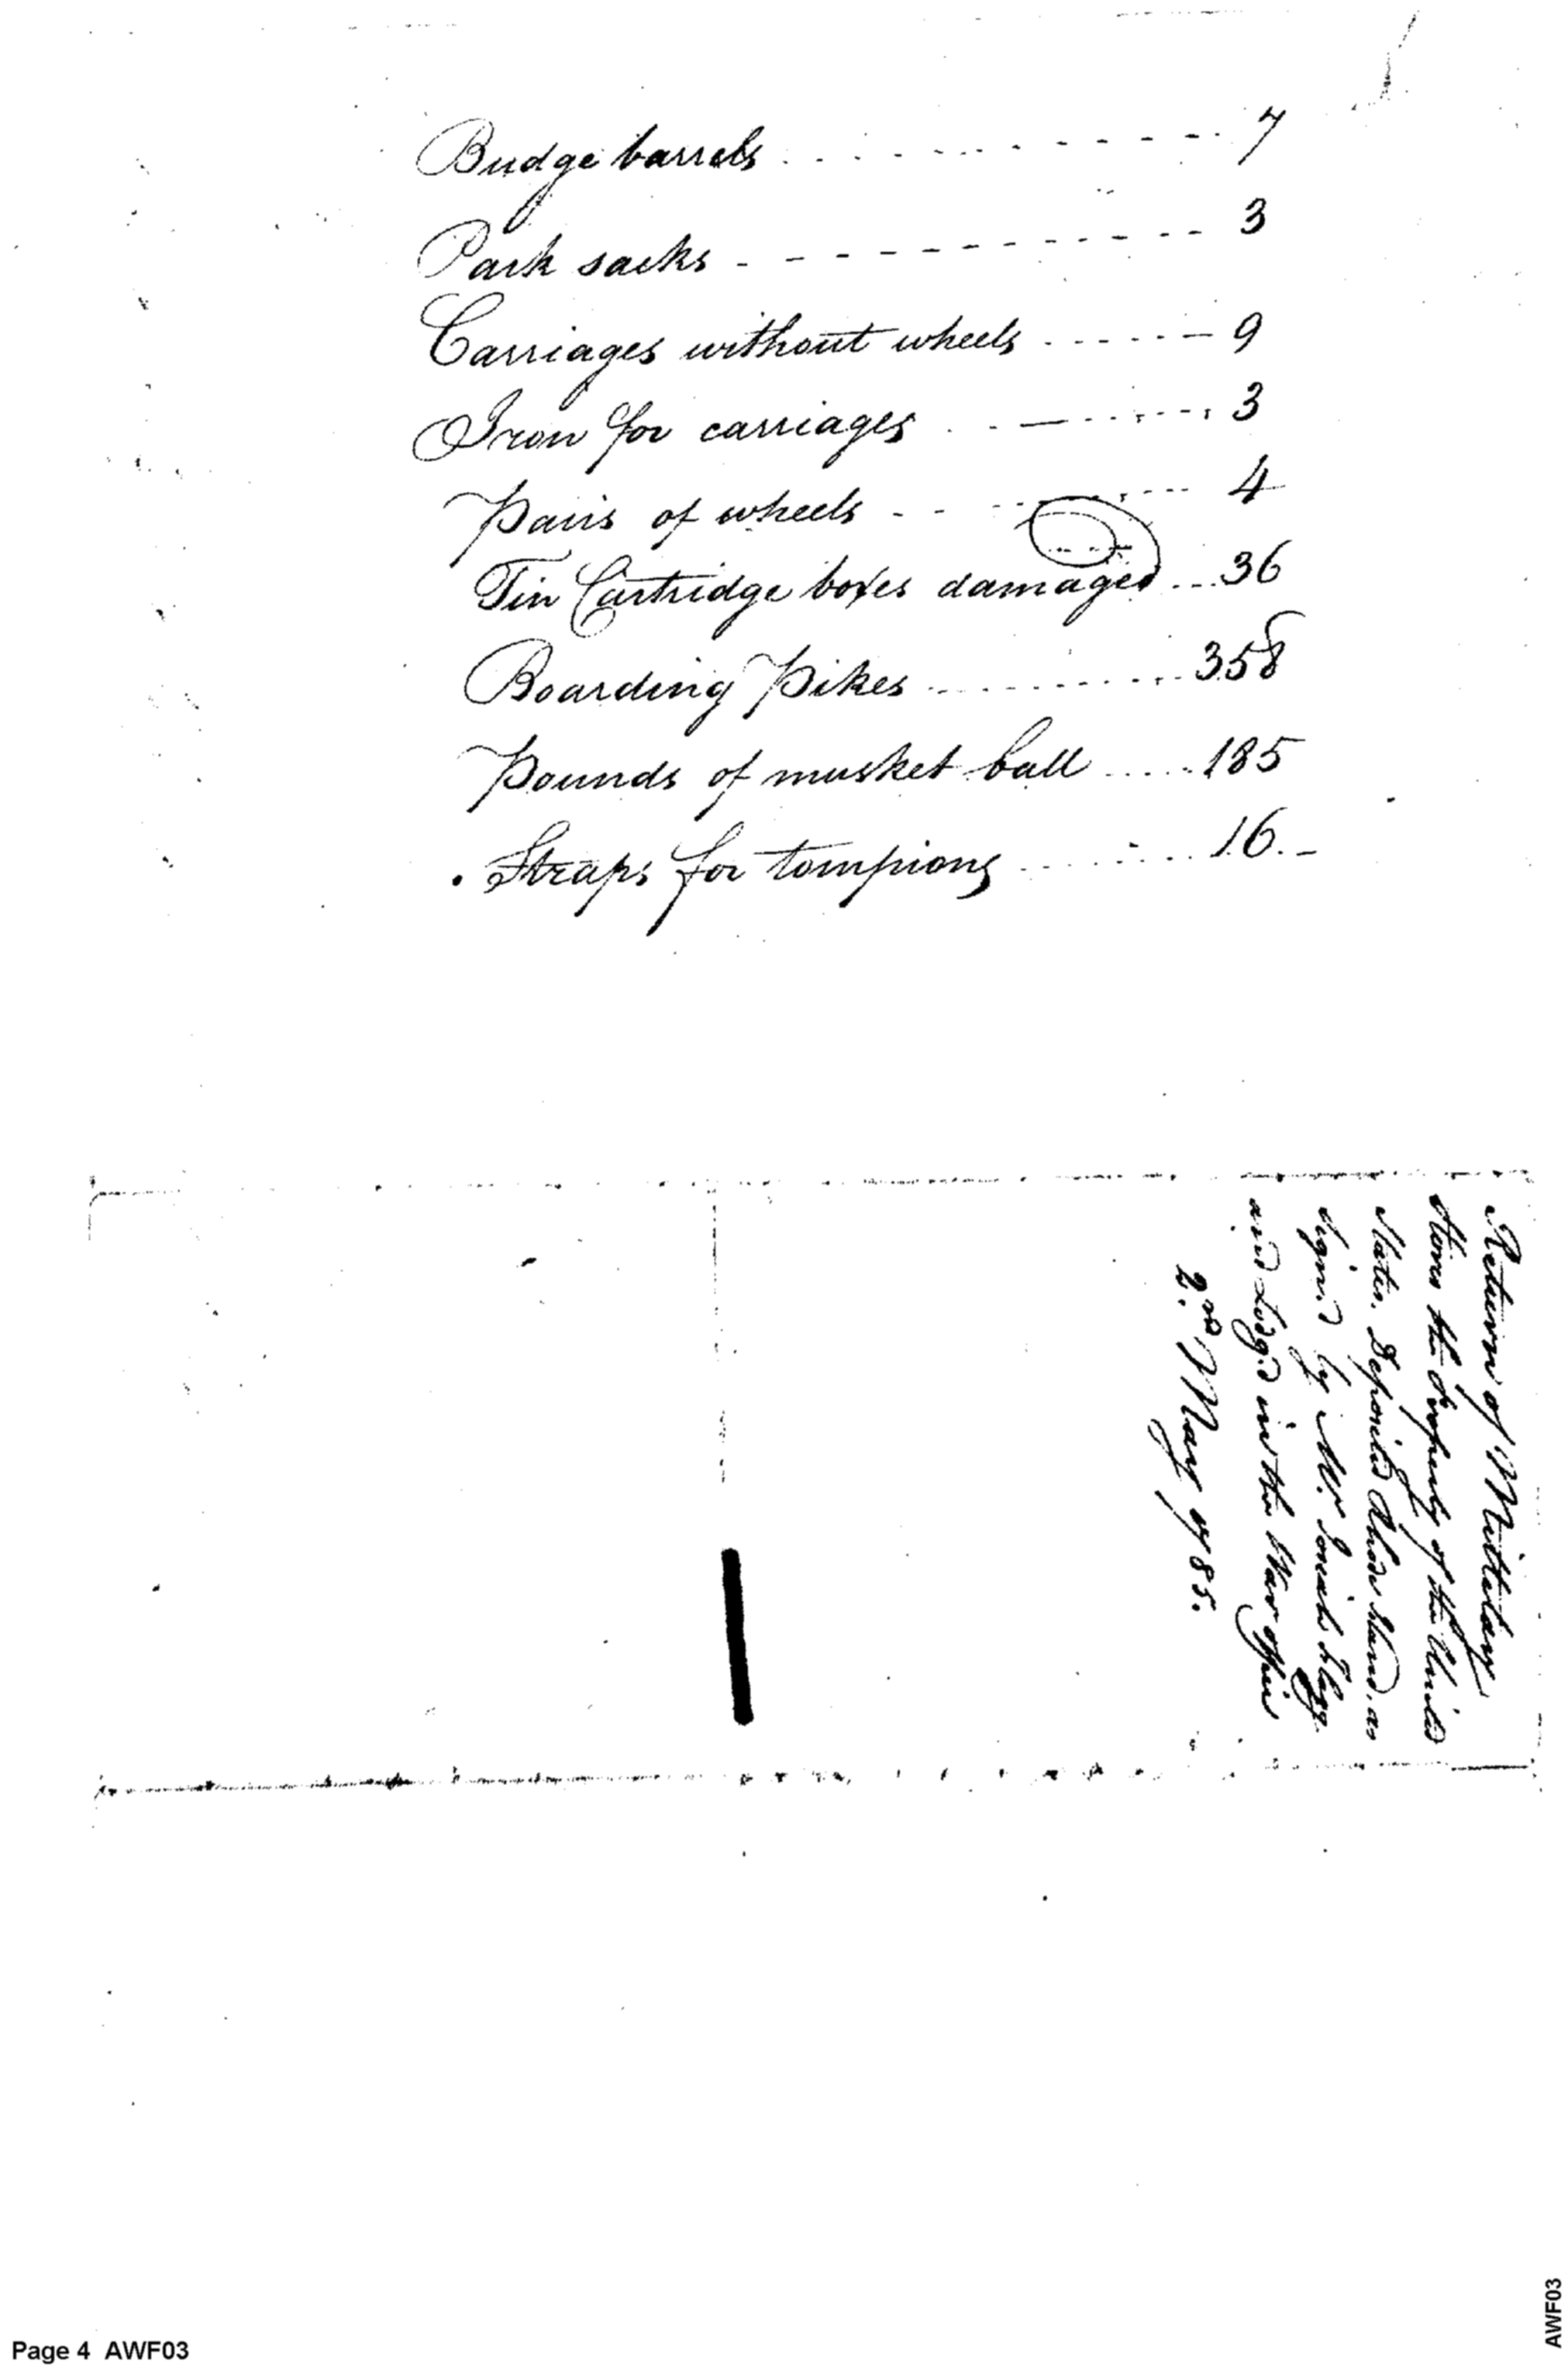 Budge barrels . . . . - - - - . - - - - - - - . 7
Park sacks - - - - - - - - - - - - - 3
Carriages without wheels - - - - - - 9
Iron for carriages . . - - - - - - - . 3
Pairs of wheels - - - - - - - - 4
Tin Cartridge boxes damaged ... 36
Boarding Pikes ............. 358
Pounds of musket ball ..... 185
Straps for tompions ......... 16.-
Return of Millitary
Stores the Property of the United
States. Deposited Rhode Island. as
Signed by Mr. Josiah Flagg.
and Lodg'd in the War Office
2.nd May 1785.
Page 4 AWF03
AWF03